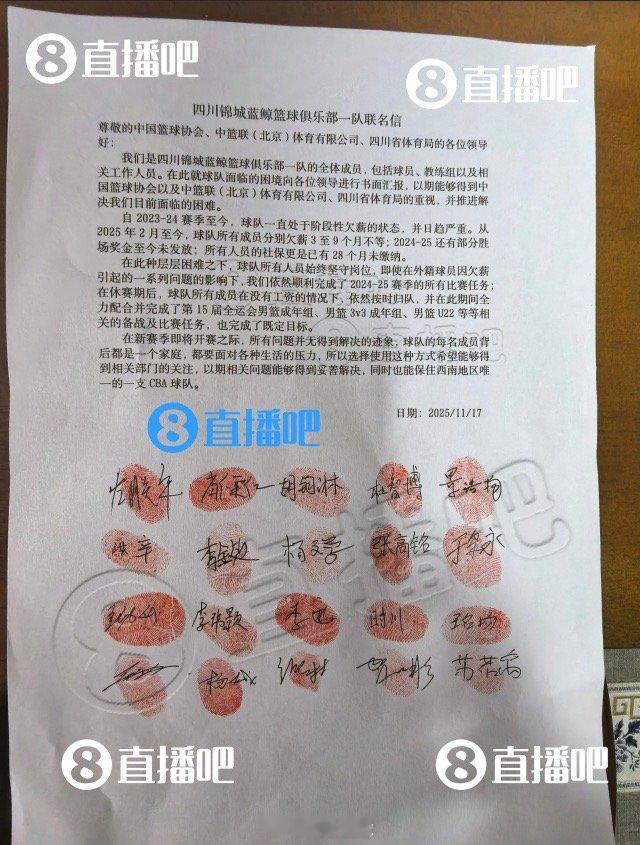 8直播吧
8直播吧
四川锦城蓝鲸篮球俱乐部一队联名信
尊敬的中国篮球协会、中篮联（北京）体育有限公司、四川省体育局的各位领导
好：
我们是四川锦城蓝鲸篮球俱乐部一队的全体成员，包括球员、教练组以及相
关工作人员。在此就球队面临的困境向各位领导进行书面汇报，以期能够得到中
国篮球协会以及中篮联（北京）体育有限公司、四川省体育局的重视，并推进解
决我们目前面临的困难。
自 2023-24 赛季至今，球队一直处于阶段性欠薪的状态，并日趋严重。从
2025 年 2 月至今，球队所有成员分别欠薪 3 至 9 个月不等；2024-25 还有部分胜
场奖金至今未发放；所有人员的社保更是已有 28 个月未缴纳。
在此种层层困难之下，球队所有人员始终坚守岗位，即使在外籍球员因欠薪
引起的一系列问题的影响下，我们依然顺利完成了 2024-25 赛季的所有比赛任务；
在休赛期后，球队所有成员在没有工资的情况下，依然按时归队，并在此期间全
力配合并完成了第 15 届全运会男篮成年组、男篮 3v3 成年组、男篮 U22 等等相
关的备战及比赛任务，也完成了既定目标。
在新赛季即将开赛之际，所有问题并无得到解决的迹象，球队的每名成员背
后都是一个家庭，都要面对各种生活的压力，所以选择使用这种方式希望能够得
到相关部门的关注，以期相关问题能够得到妥善解决，同时也能保住西南地区唯
一的一支 CBA 球队。
日期：2025/11/17
8直播吧
直播吧
杜智博 景浩杨
杨文学 张高铭
李张颖 李迅 时川
杨
8直播吧
8直播吧